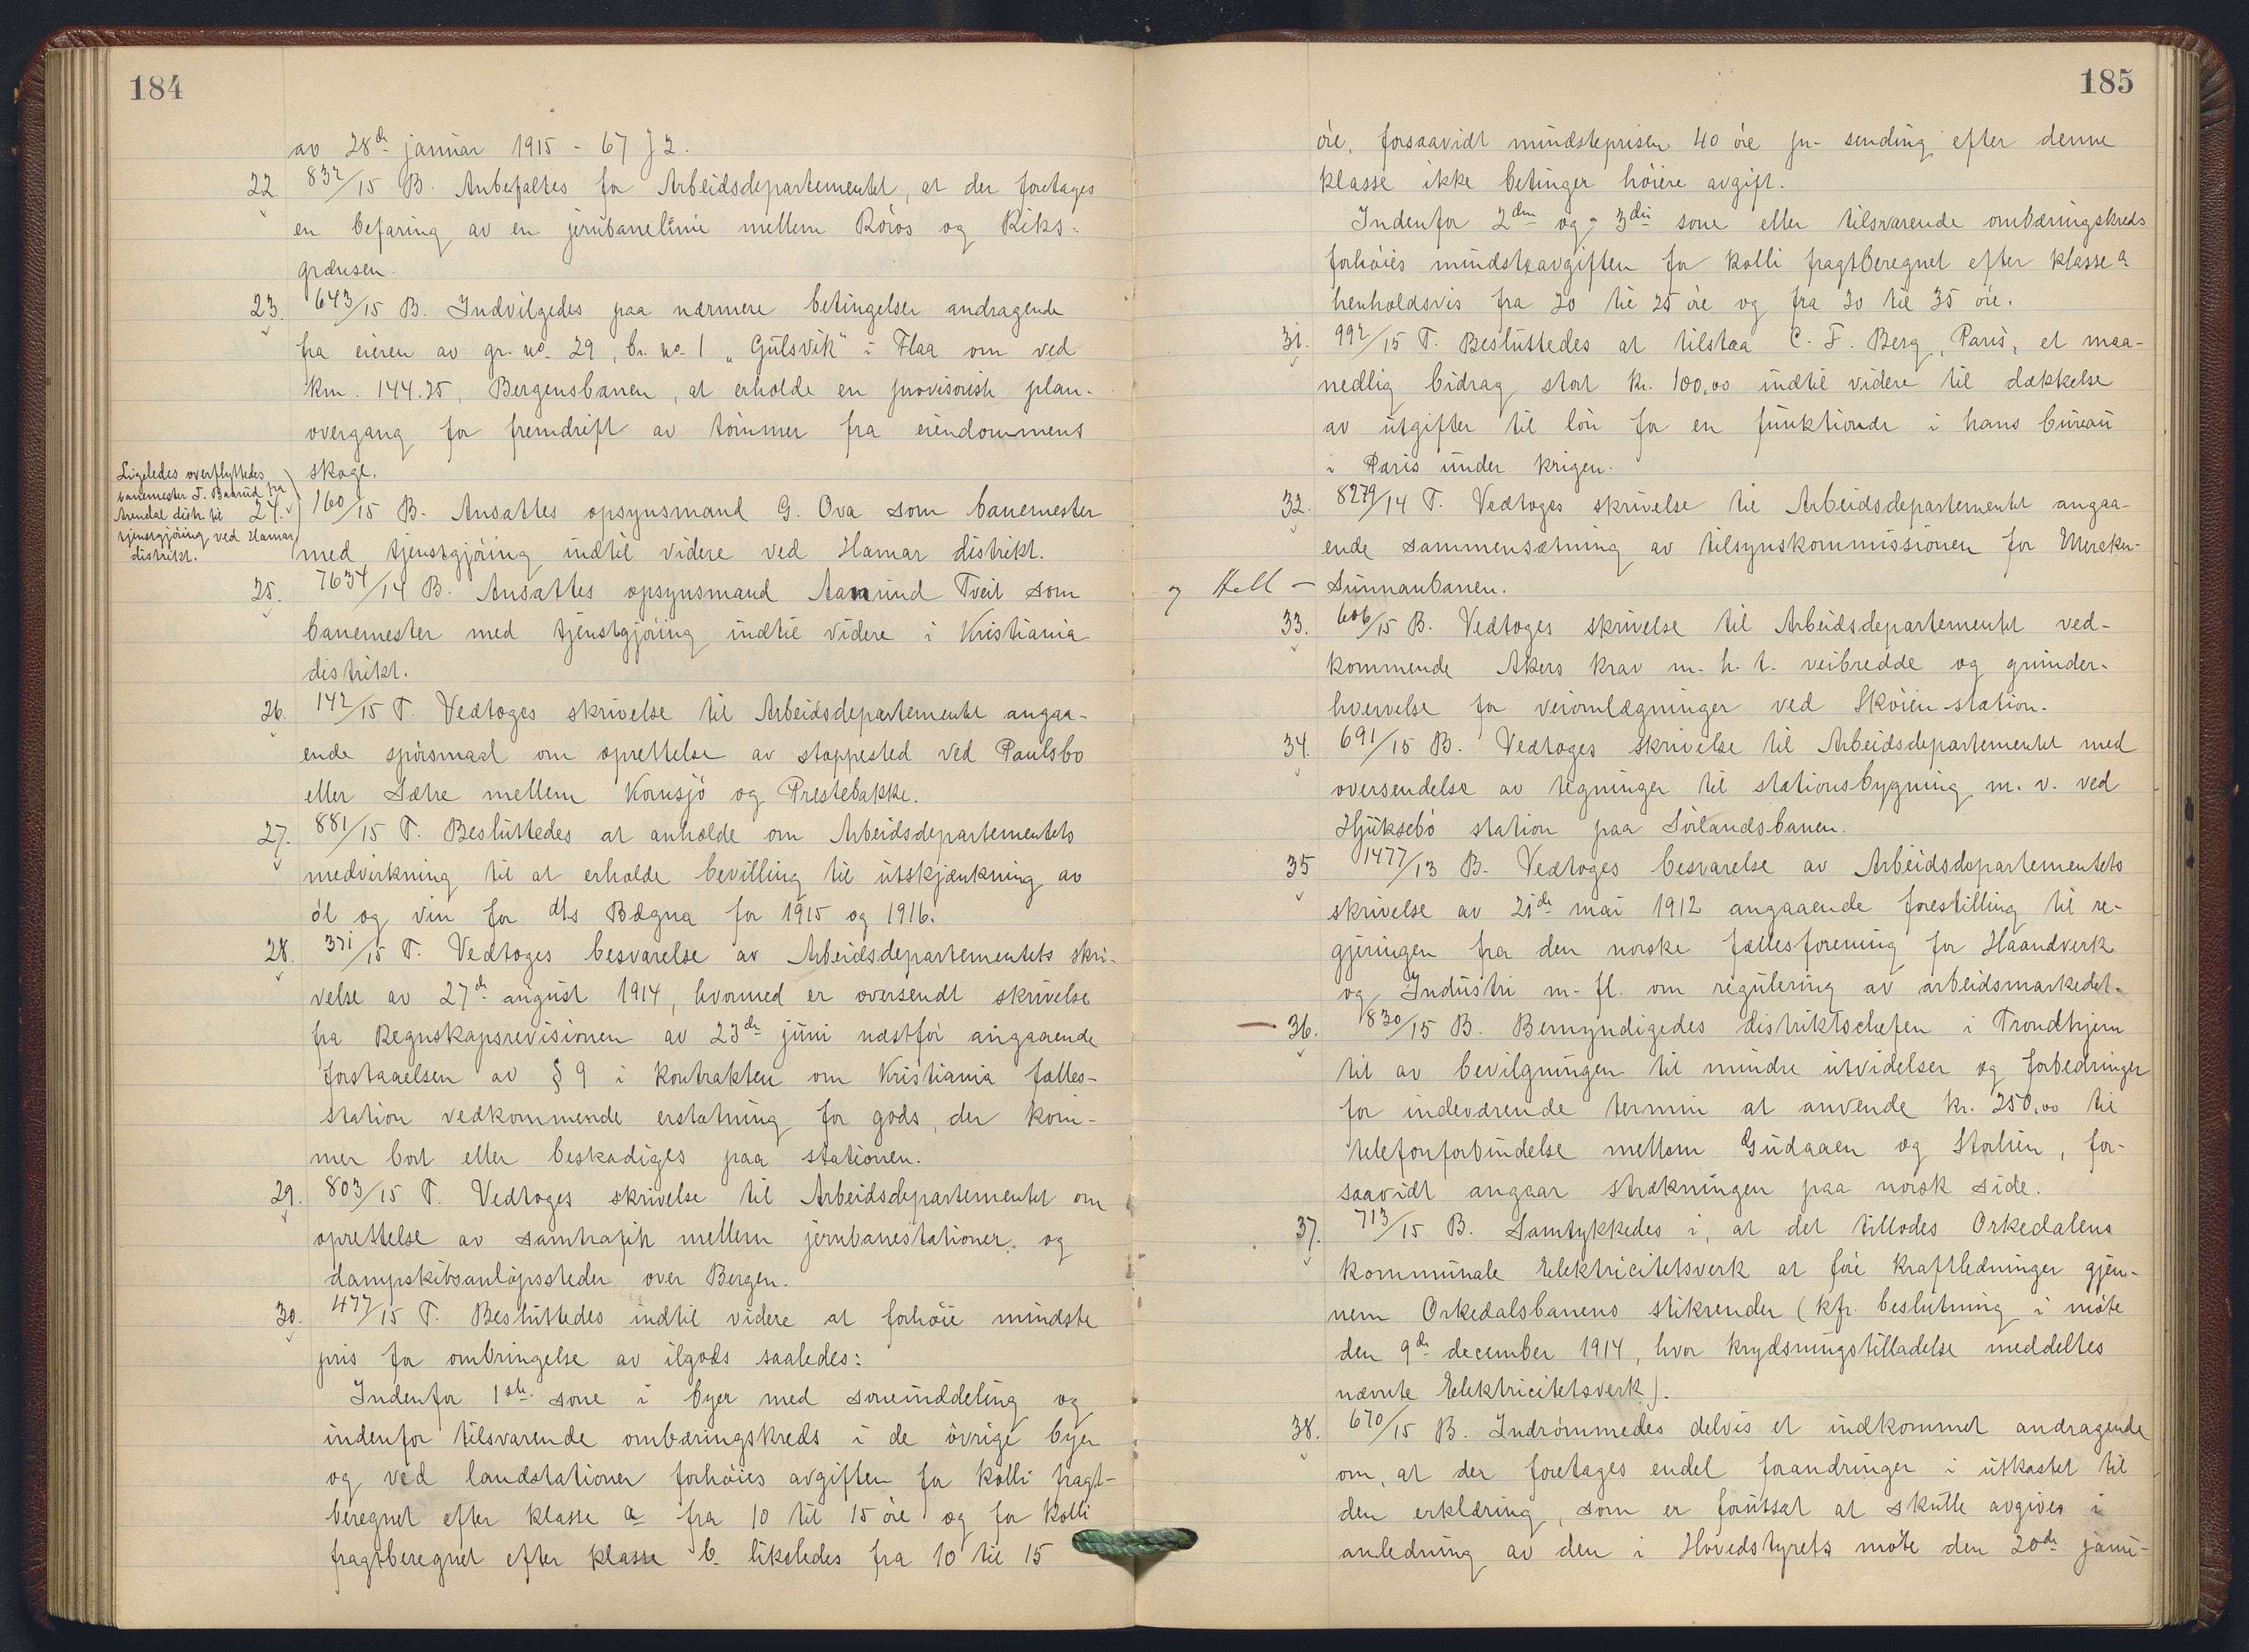 184
av 28de januar 1915 - 67 J 2.
22. 832/15 B. Anbefaltes for Arbeidsdepartementet, at der foretages
en befaring av en jernbanelinie mellem Röros og Riks-
grænsen.
23. 643/15 B. Indvilgedes paa nærmere betingelser andragende
fra eieren av gr. no. 29, br. no. 1 „Gulsvik" i Flaa om ved
km. 144.25, Bergensbanen, at erholde en provisorisk plan-
overgang for fremdrift av tömmer fra eiendommens
skoge.
Ligeledes overflyttedes
banemester T. Baarud fra
Arendal distr. til
tjenestgjöring ved Hamar
distrikt.
24. 160/15 B. Ansattes opsynsmand G. Ova som banemester
med tjenstgjöring indtil videre ved Hamar distrikt.
25. 7634/14 B. Ansattes opsynsmand Aamund Tveit som
banemester med tjenstgjöring indtil videre i Kristiania
distrikt.
26. 142/15 T. Vedtoges skrivelse til Arbeidsdepartementet angaa-
ende spörsmaal om oprettelse av stoppested ved Paulsbo
eller Sætre mellem Kornsjö og Prestebakke.
27. 881/15 T. Besluttedes at anholde om Arbeidsdepartementets
medvirkning til at erholde bevilling til utskjænkning av
öl og vin for d/s Bægna for 1915 og 1916.
28. 371/15 T. Vedtoges besvarelse av Arbeidsdepartementets skri-
velse av 27de august 1914, hvormed er oversendt skrivelse
fra Regnskapsrevisionen av 23de juni næstför angaaende
forstaaelsen av § 9 i kontrakten om Kristiania fælles-
station vedkommende erstatning for gods, der kom-
mer bort eller beskadiges paa stationen.
29. 803/15 T. Vedtoges skrivelse til Arbeidsdepartementet om
oprettelse av samtrafik mellem jernbanestationer og
dampskibsanlöpssteder over Bergen.
30. 477/15 T. Besluttedes indtil videre at forhöie mindste
pris for ombringelse av ilgods saaledes:
Indenfor 1ste sone i byer med soneinddeling og
indenfor tilsvarende ombæringskreds i de övrige byer
og ved landstationer forhöies avgiften for kolli fragt-
beregnet efter klasse a fra 10 til 15 öre og for kolli
fragtberegnet efter klasse b likeledes fra 10 til 15
185
öre, forsaavidt mindsteprisen 40 öre pr. sending efter denne
klasse ikke betinger höiere avgift.
Indenfor 2den og 3die sone eller tilsvarende ombæringskreds
forhöies mindsteavgiften for kolli fragtberegnet efter klasse a
henholdsvis fra 20 til 25 öre og fra 30 til 35 öre.
31. 992/15 T. Besluttedes at tilstaa C. F. Berg, Paris, et maa-
nedlig bidrag stort kr. 100,00 indtil videre til dækkelse
av utgifter til lön for en funktionær i hans bureau
i Paris under krigen.
32. 8279/14 T. Vedtoges skrivelse til Arbeidsdepartementet angaa-
ende sammensætning av tilsynskommissionen for Meraker-
og Hell - Sunnanbanen.
33. 606/15 B. Vedtoges skrivelse til Arbeidsdepartementet ved-
kommende Akers krav m. h. t. veibredde og grunder-
hvervelse for veiomlægninger ved Sköien station.
34. 691/15 B. Vedtoges skrivelse til Arbeidsdepartementet med
oversendelse av tegninger til stationsbygning m. v. ved
Hjuksebö station paa Sörlandsbanen.
35. 1477/13 B. Vedtoges besvarelse av Arbeidsdepartementets
skrivelse av 21de mai 1912 angaaende forestilling til re-
gjeringen fra den norske fællesforening for Haandverk
og Industri m. fl. om regulering av arbeidsmarkedet.
36. 830/15 B. Bemyndigedes distriktschefen i Trondhjem
til av bevilgningen til mindre utvidelser og forbedringer
for indeværende termin at anvende kr. 250,00 til
telefonforbindelse mellem Gudaaen og Storlien, for-
saavidt angaar strækningen paa norsk side.
37. 713/15 B. Samtykkedes i, at det tillodes Orkedalens
kommunale Elektricitetsverk at före kraftledninger gjen-
nem Orkedalsbanens stikrender (kfr. beslutning i möte
den 9de december 1914, hvor krydsningstilladelse meddeltes
nævnte Elektricitetsverk).
38. 670/15 B. Indrömmedes delvis et indkommet andragende
om, at der foretages endel forandringer i utkastet til
den erklæring, som er forutsat at skulle avgives i
anledning av den i Hovedstyrets möte den 20de janu-